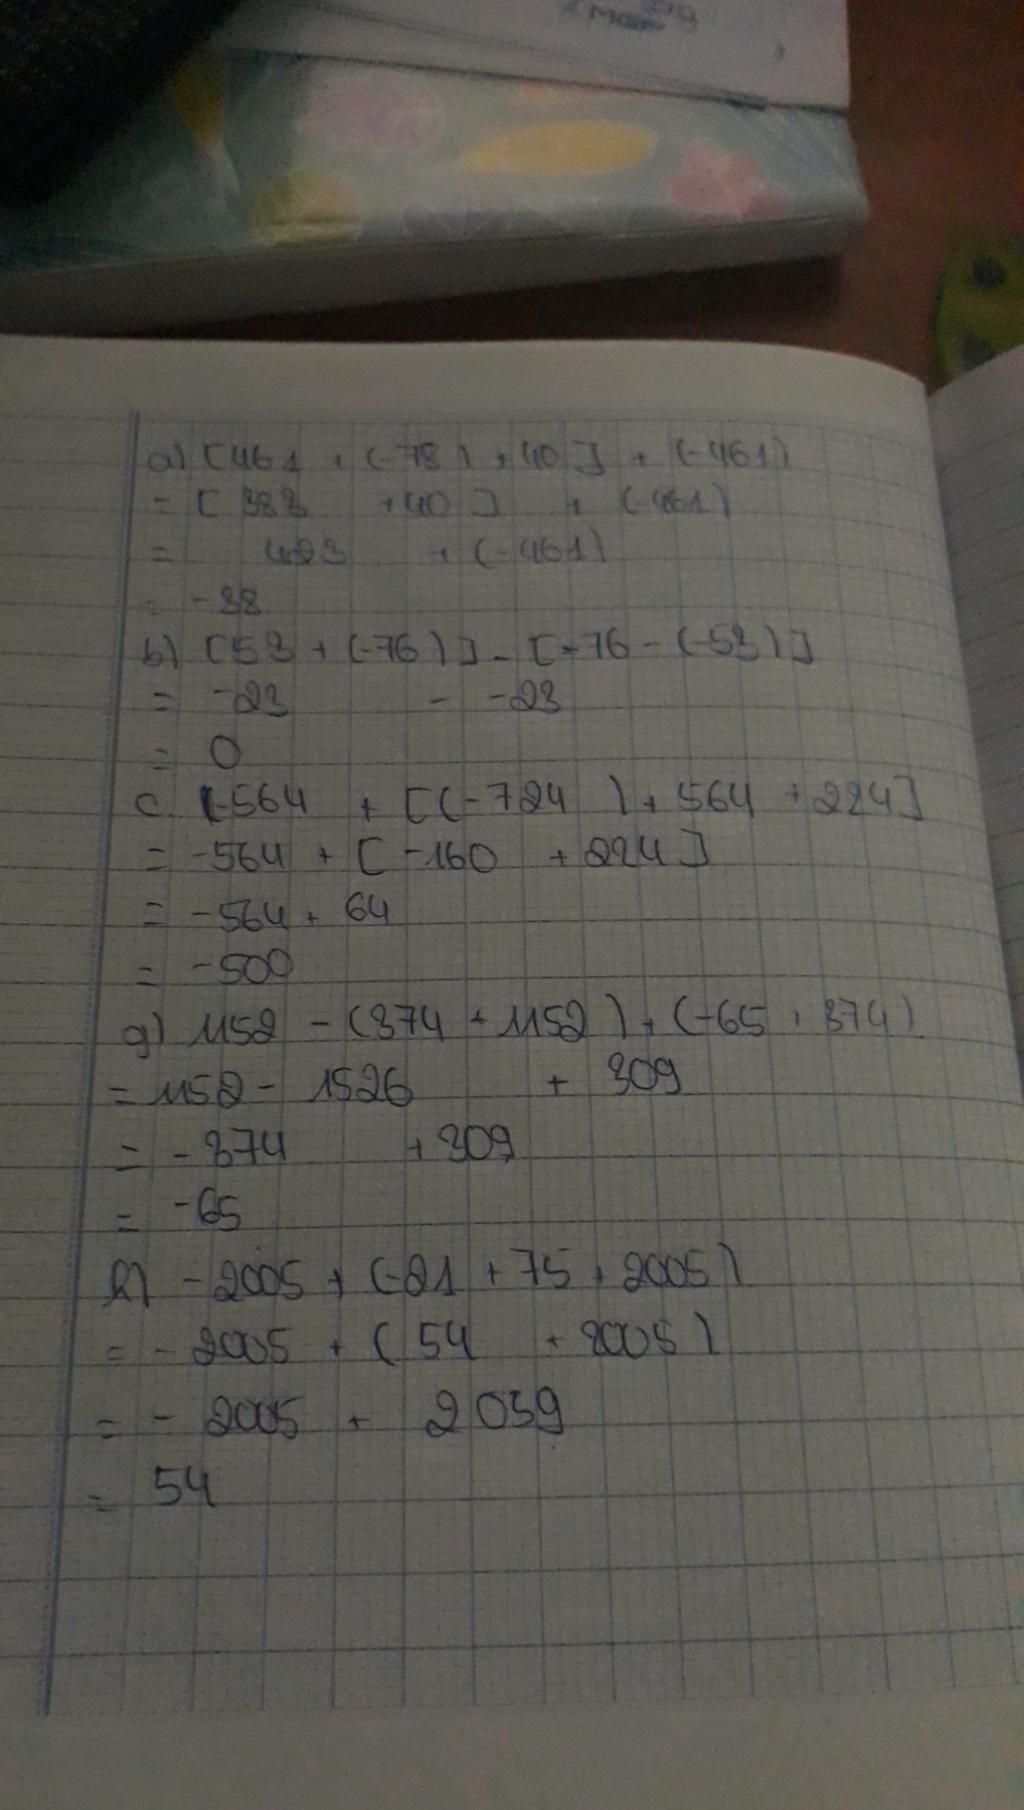 a) [461 + (-78) + 40] + (-461)
= [383 + 40] + (-461)
= 423 + (-461)
= -38
b) [53 + (-76)] - [-76 - (-53)]
= -23 - -23
= 0
c. (-564 + [(-724) + 564 + 224]
= -564 + [-160 + 224]
= -564 + 64
= -500
g) 1152 - (374 + 1152) + (-65 + 374)
= 1152 - 1526 + 309
= -374 + 309
= -65
h) -2005 + (-21 + 75 + 2005)
= -2005 + (54 + 2005)
= - 2005 + 2059
= 54